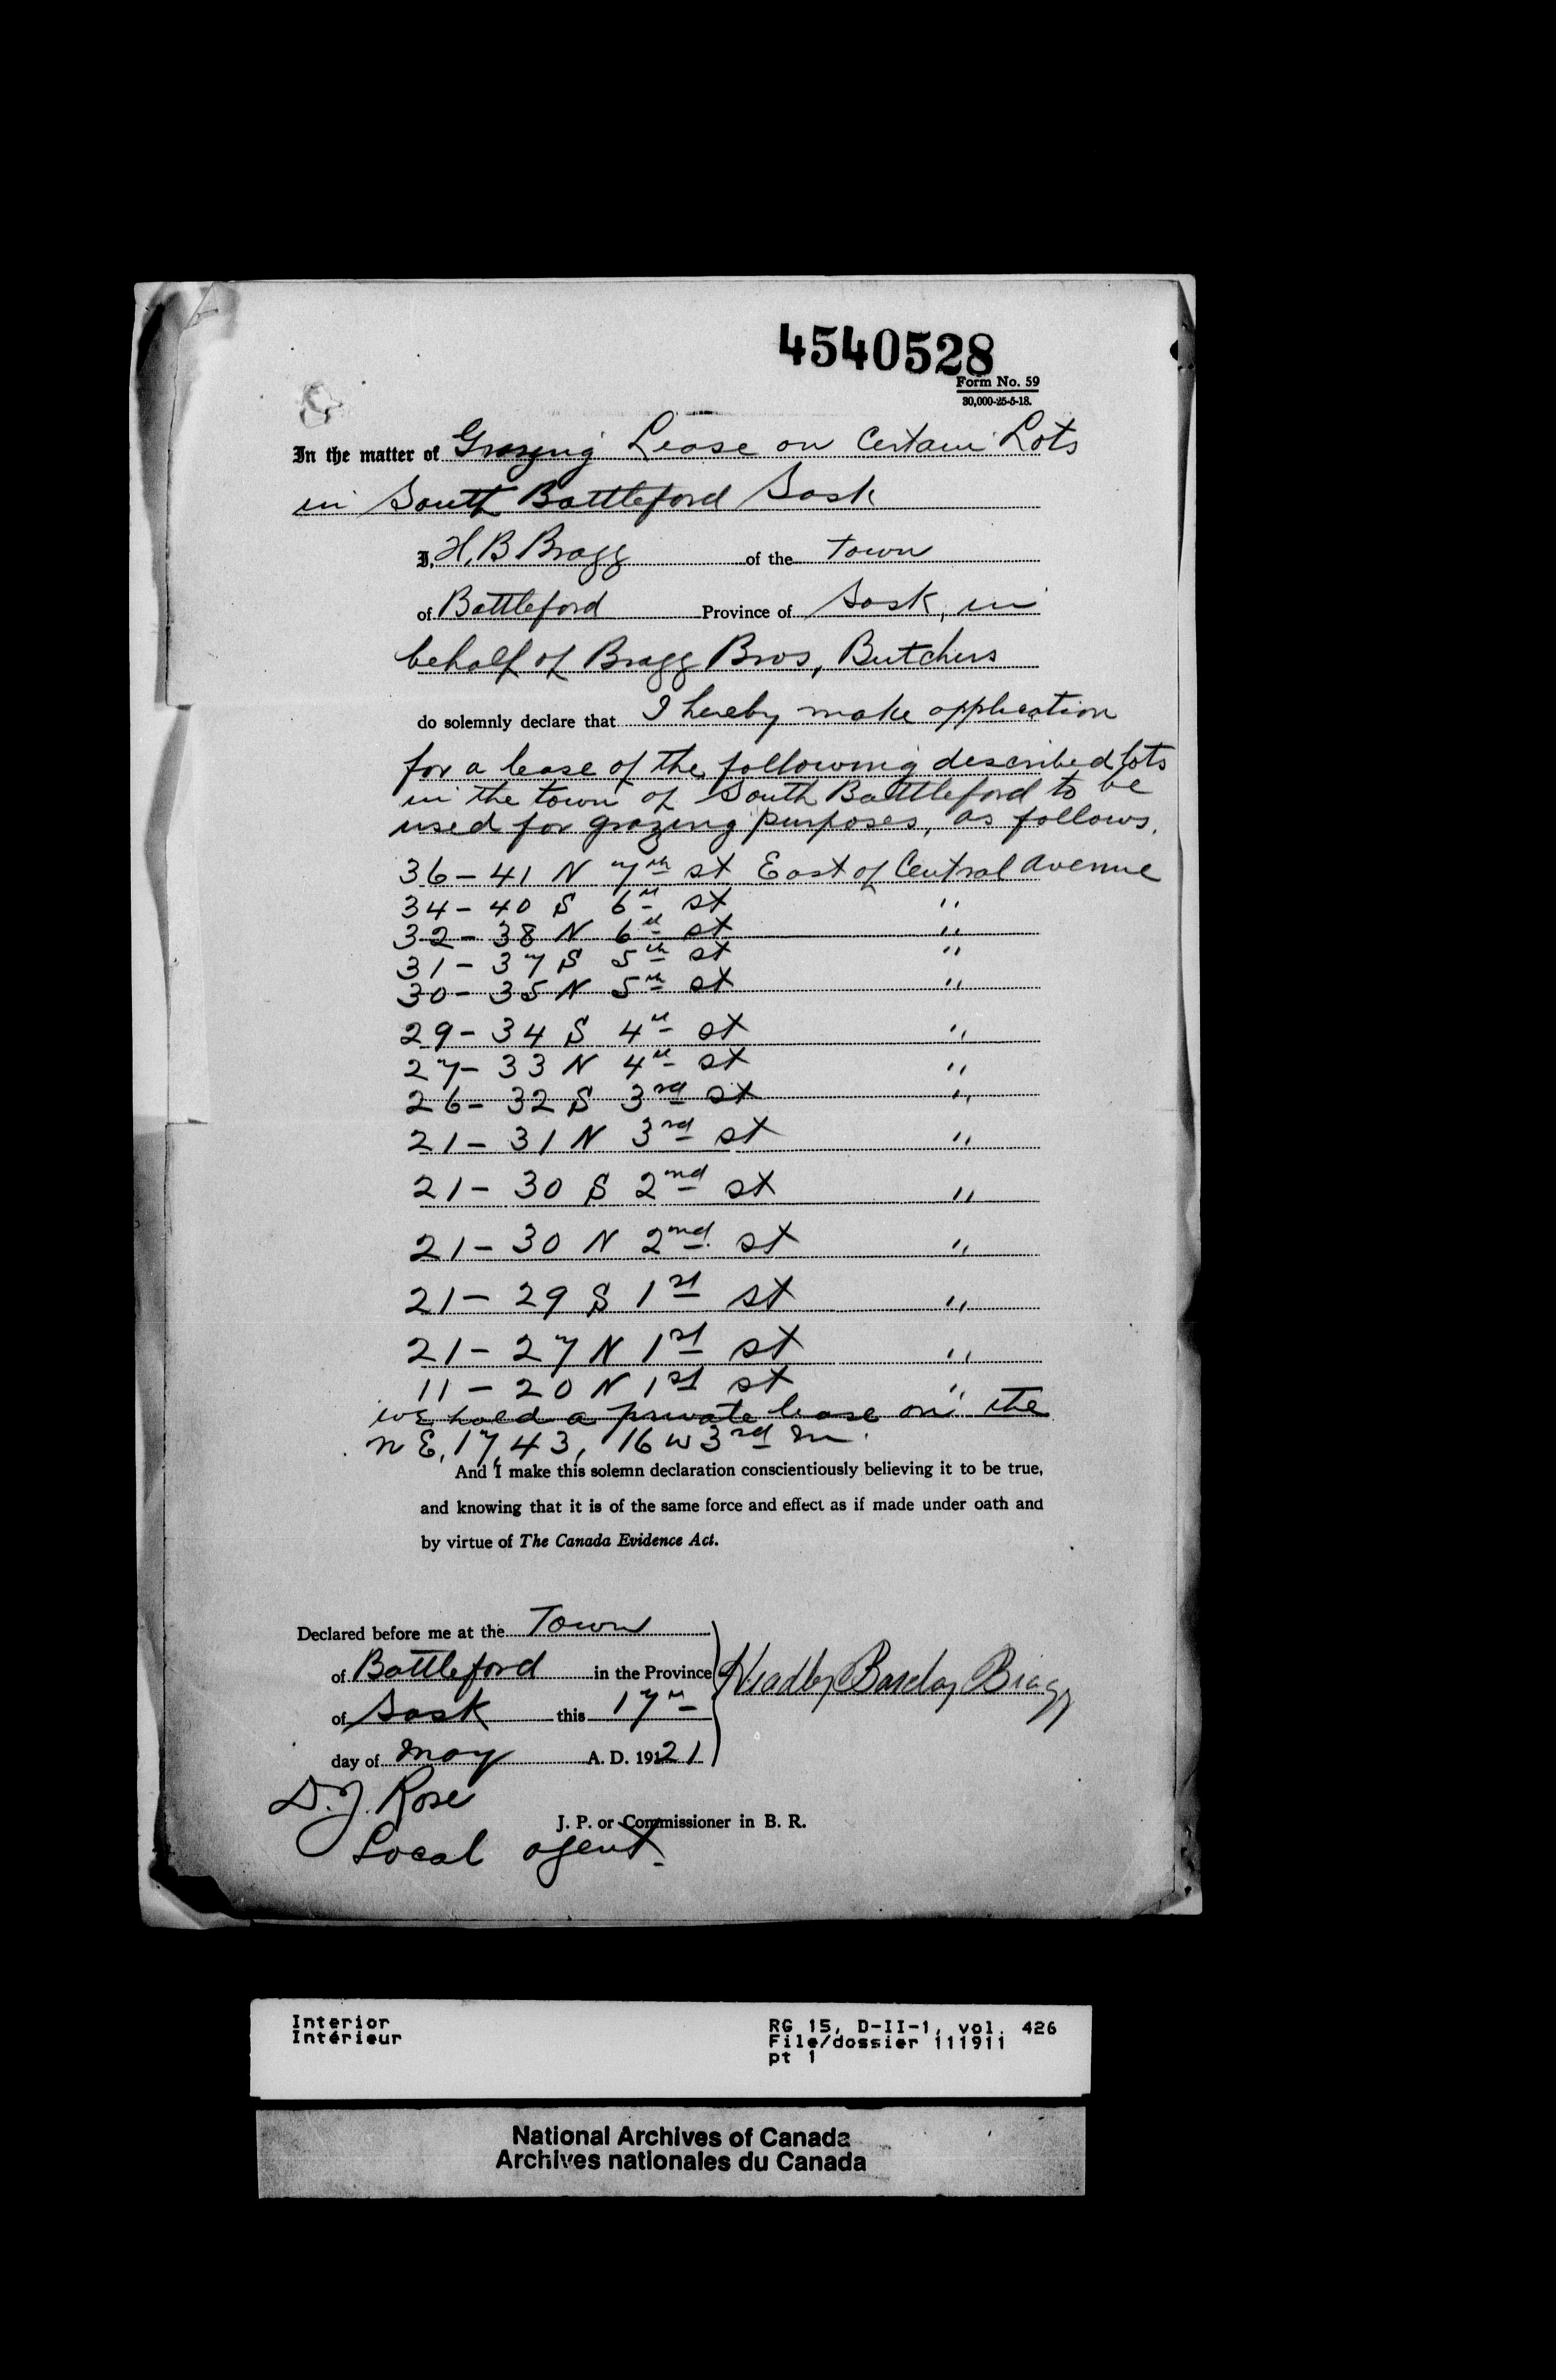 4540528
Form No. 59
30,000-25-5-18.
In the matter of Grazing Lease on Certain Lots
in South Battleford Sask
I, H. B Bragg of the Town
of Battleford Province of Sask, in
behalf of Bragg Bros, Butchers
do solemnly declare that I hereby make application
for a lease of the following described lots
in the town of South Battleford to be
used for grazing purposes, as follows.
36 - 41 N 7th st East of Central Avenue
34 - 40 S 6th st "
32 - 38 N 6th st "
31 - 37 S 5th st "
30 - 35 N 5th st "
29 - 34 S 4th st "
27 - 33 N 4th st "
26 - 32 S 3rd st "
21 - 31 N 3rd st "
21 - 30 S 2nd st "
21 - 30 N 2nd st "
21 - 29 S 1st st "
21 - 27 N 1st st "
11 - 20 N 1st st "
we hold a private lease on the
N E, 17, 43, 16 W 3rd M.
And I make this solemn declaration conscientiously believing it to be true,
and knowing that it is of the same force and effect as if made under oath and
by virtue of The Canada Evidence Act.
Declared before me at the Town
of Battleford in the Province
of Sask this 17th
day of May A. D. 19121
Headley Barclay Bragg
D. J. Rose
J. P. or Commissioner in B. R.
Local agent.
Interior
Intérieur
RG 15, D-II-1, vol. 426
File/dossier 111911
pt 1
National Archives of Canada
Archives nationales du Canada